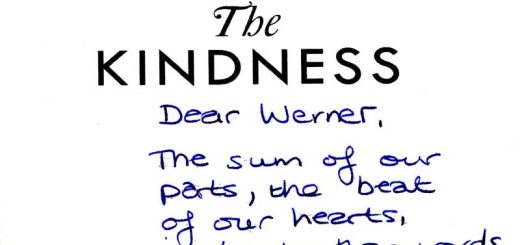 The
KINDNESS
Dear Werner,
The sum of our
parts, the beat
of our hearts,